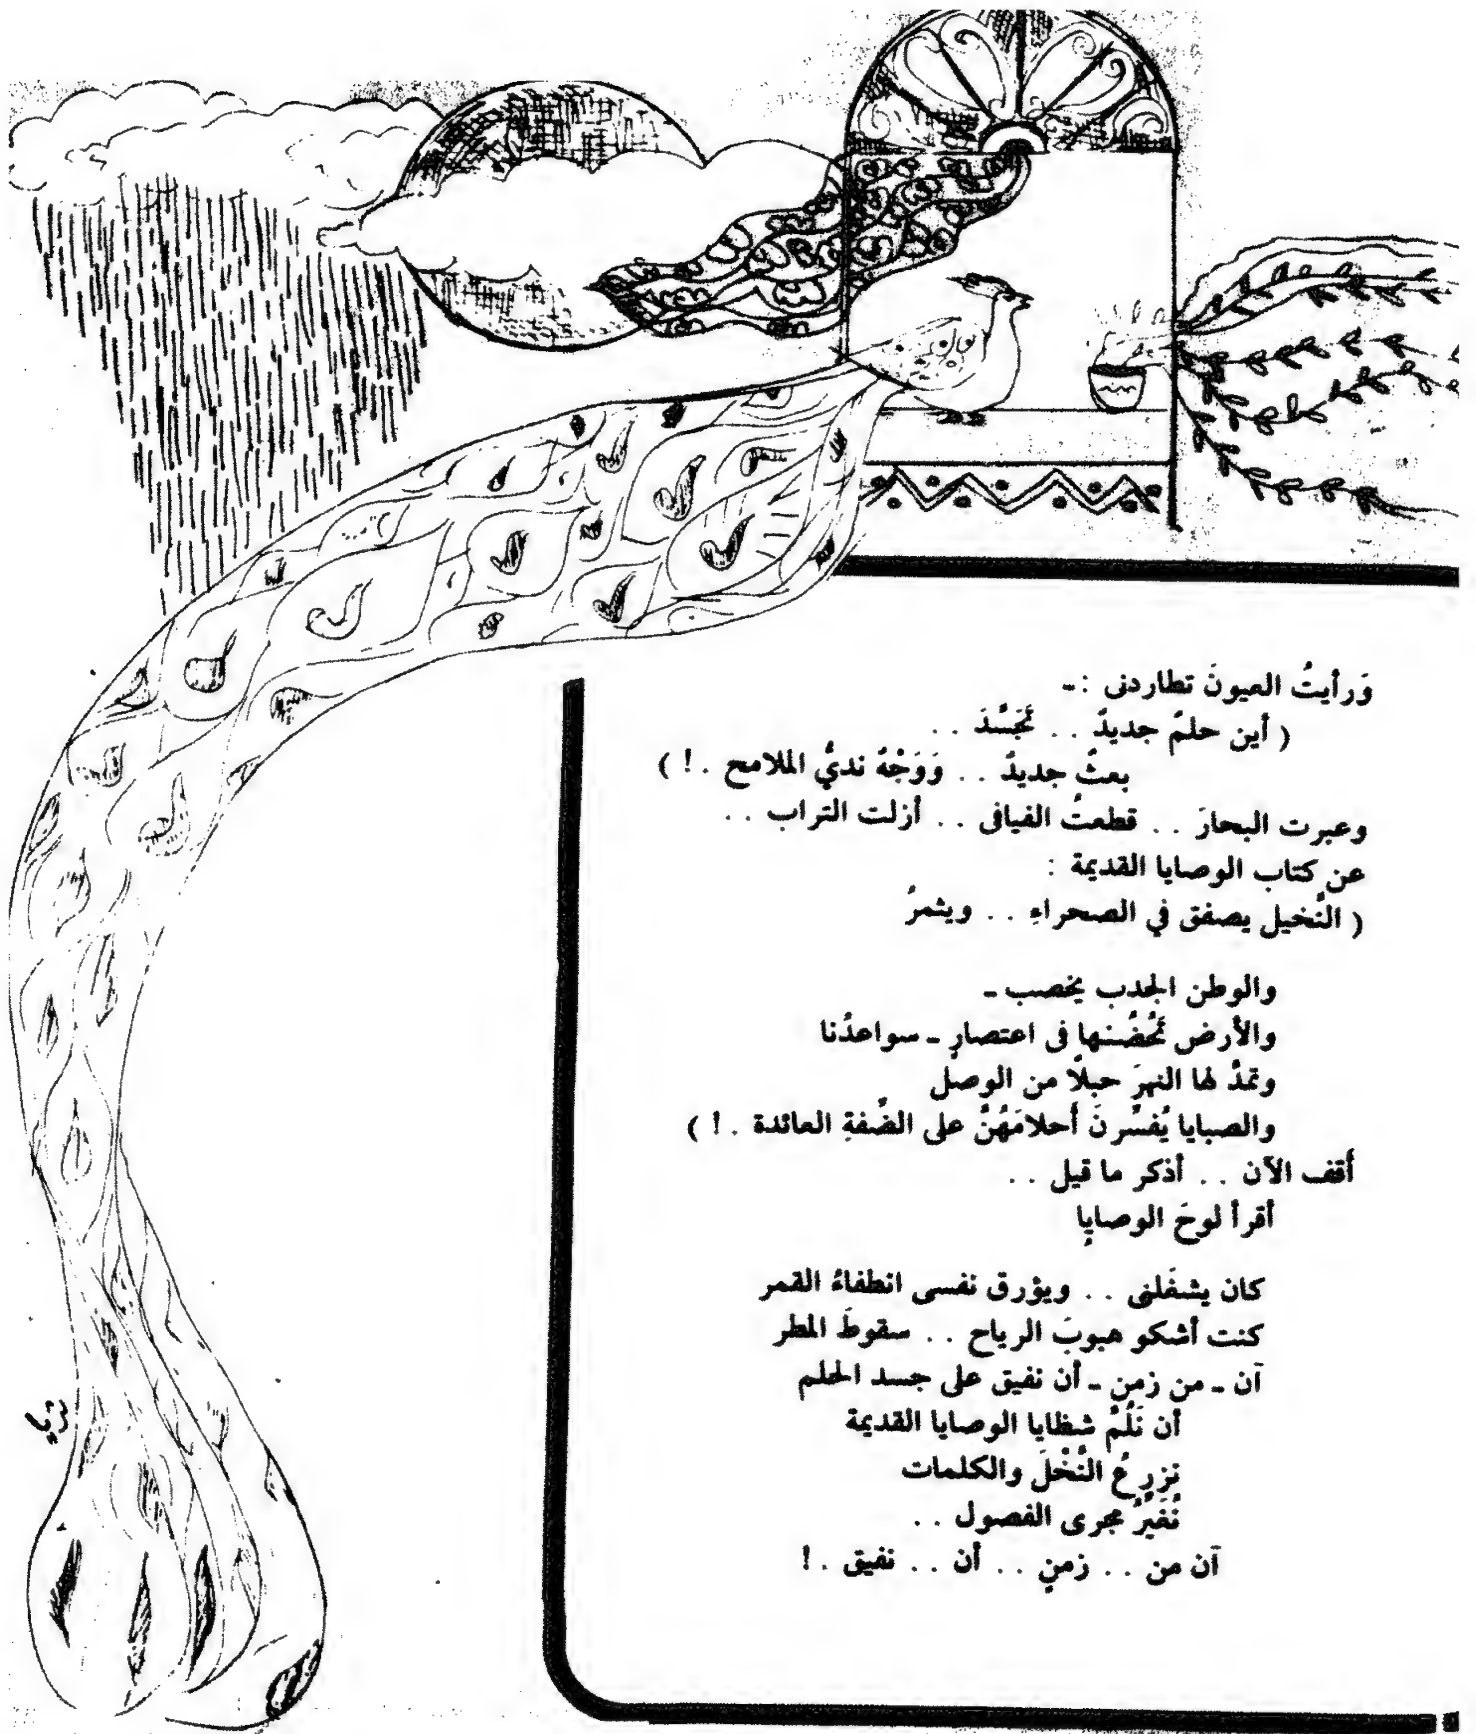 وَرأيتُ العيونَ تطاردنى :ـ
( أين حلمٌ جديدٌ . . تَجَسَّدَ . .
بعثٌ جديدٌ . . وَوَجْهٌ نديُّ الملامح . ! )
وعبرت البحارَ . . قطعتُ الفيافى . . أزلت التراب . .
عن كتاب الوصايا القديمة :
( النَّخيل يصفق في الصحراءِ . . ويثمرُ
والوطن الجدب يخصب ـ
والأرض تَحْضُنها فى اعتصارٍ ـ سواعدُنا
وتمدُّ لها النهرَ حبلاً من الوصل
والصبايا يُفسِّرنَ أَحلامَهُنَّ على الضَّفةِ العائدة . ! )
أقف الآن . . أذكر ما قيل . .
أقرأ لوحَ الوصايا
كان يشغَلنى . . ويؤرق نفسى انطفاءُ القمر
كنت أشكو هبوبَ الرياح . . سقوطَ المطر
آن ـ من زمنٍ ـ أن نفيق على جسد الحلم
أن نَلُمَّ شظايا الوصايا القديمة
نزرعُ النَّخْلَ والكلمات
نُغَيِّرُ مجرى الفصول . .
آن من . . زمنٍ . . أن . . نفيق . !